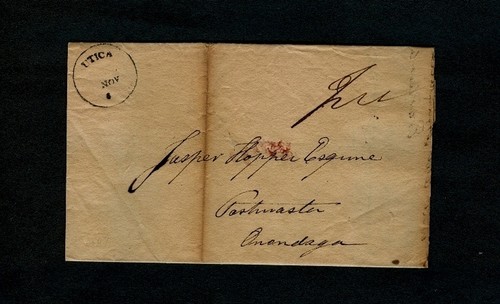 UTICA
NOV
6
Free
Jasper Hopper Esquire
Postmaster
Onondaga